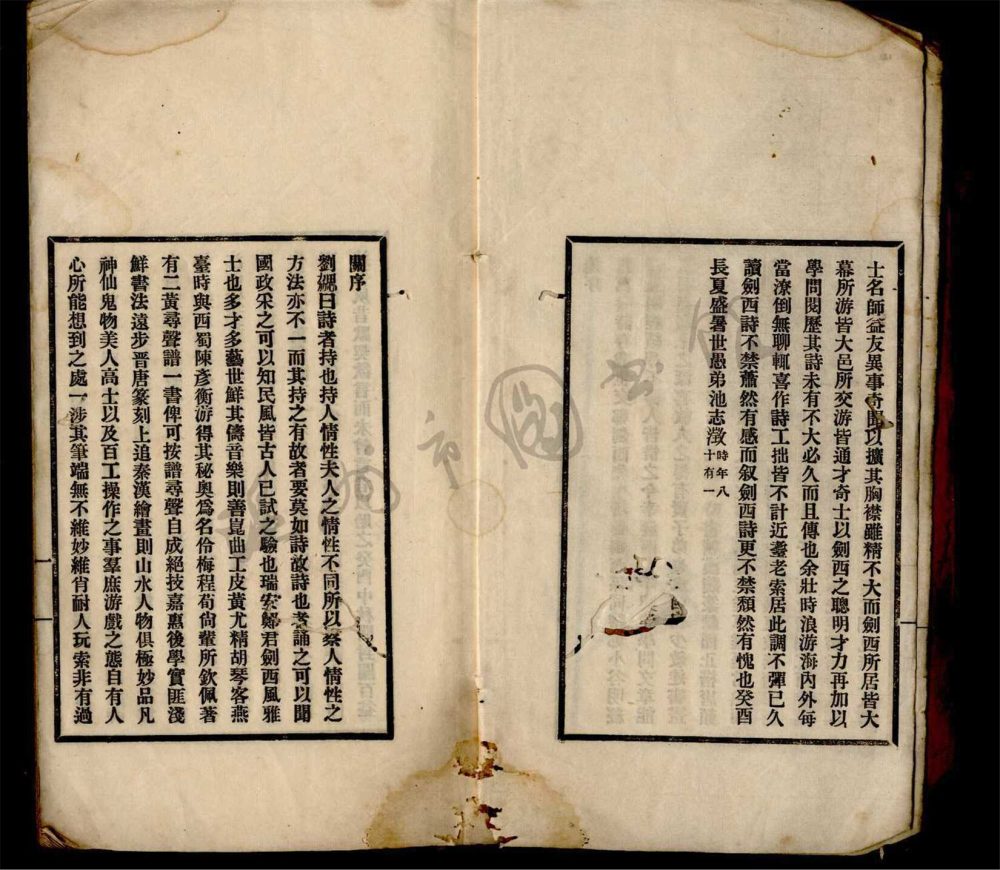 士名師益友異事奇聞以擴其胸襟雖精不大而劍西所居皆大
幕所游皆大邑所交游皆通才奇士以劍西之聰明才力再加以
學問閱歷其詩未有不大必久而且傳也余壯時浪游海內外每
當潦倒無聊輒喜作詩工拙皆不計近耋老索居此調不彈已久
讀劍西詩不禁蕭然有感而叙劍西詩更不禁頹然有愧也癸酉
長夏盛暑世愚弟池志澂時年八十有一
關序
劉勰曰詩者持也持人情性夫人之情性不同所以察人情性之
方法亦不一而其持之有故者要莫如詩故詩也者誦之可以聞
國政采之可以知民風皆古人已試之驗也瑞安鄒君劍西風雅
士也多才多藝世鮮其儔音樂則善崑曲工皮黃尤精胡琴客燕
臺時與西蜀陳彥衡游得其秘奧爲名伶梅程荀尙輩所欽佩著
有二黃尋聲譜一書俾可按譜尋聲自成絕技嘉惠後學實匪淺
鮮書法遠步晉唐篆刻上追秦漢繪畫則山水人物俱極妙品凡
神仙鬼物美人高士以及百工操作之事羣庶游戲之態自有人
心所能想到之處一涉其筆端無不維妙維肖耐人玩索非有過